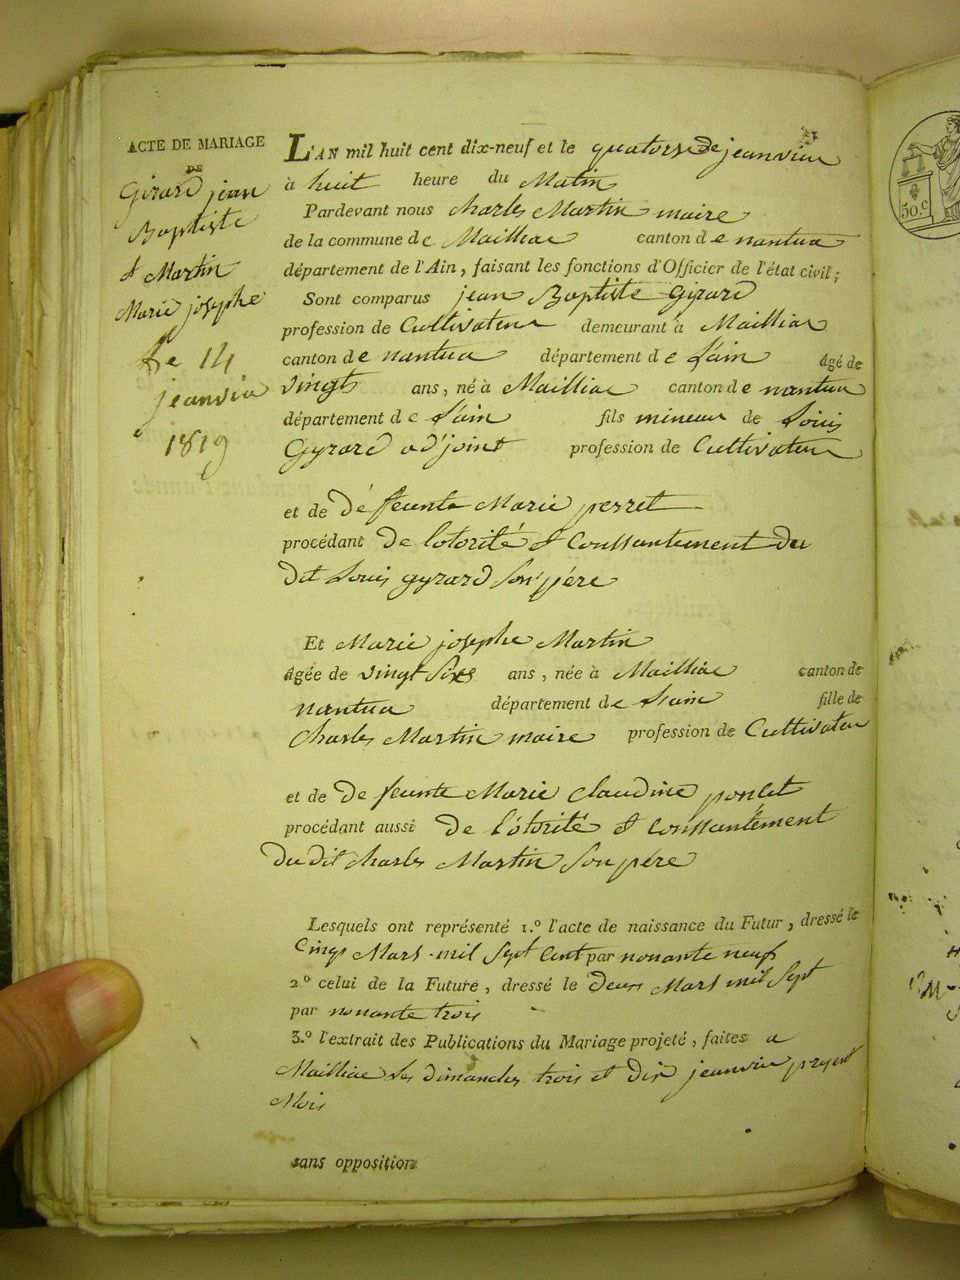 ACTE DE MARIAGE
DE
Girard jean
Baptiste
et Martin
Marie josephe
Le 14
jeanvie
1819
L'AN mil huit cent dix-neuf et le quatorse de jeanvie
à huit heure du Matin
Pardevant nous charles Martin maire
de la commune de Mailliac canton de nantua
département de l'Ain, faisant les fonctions d'Officier de l'état civil;
Sont comparus jean Baptiste Girard
profession de Cultivateur demeurant à Mailliac
canton de nantua département de L'ain âgé de
vingts ans, né à Mailliac canton de nantua
département de L'ain fils mineur de Louis
Gyrard adjoint profession de Cultivateur
et de dé feunte Marie perret
procédant de lotorité et Conssantement du
dit Louis gyrard son pére
Et Marie josephe Martin
âgée de vingt sixs ans, née à Mailliac canton de
nantua département de L'ain fille de
charles Martin maire profession de Cultivateur
et de de feunte Marie claudine poncet
procédant aussi de l'otorité et conssantement
du dit charles Martin son pére
Lesquels ont représenté 1.º l'acte de naissance du Futur, dressé le
Cinqs Mars mil sept Cent par nonante neufs
2º celui de la Future, dressé le deus Mars mil sept
par nonante trois
3.º l'extrait des Publications du Mariage projeté, faites a
Mailliac les dimanches trois et dix jeanvie present
Mois
sans opposition
50.c